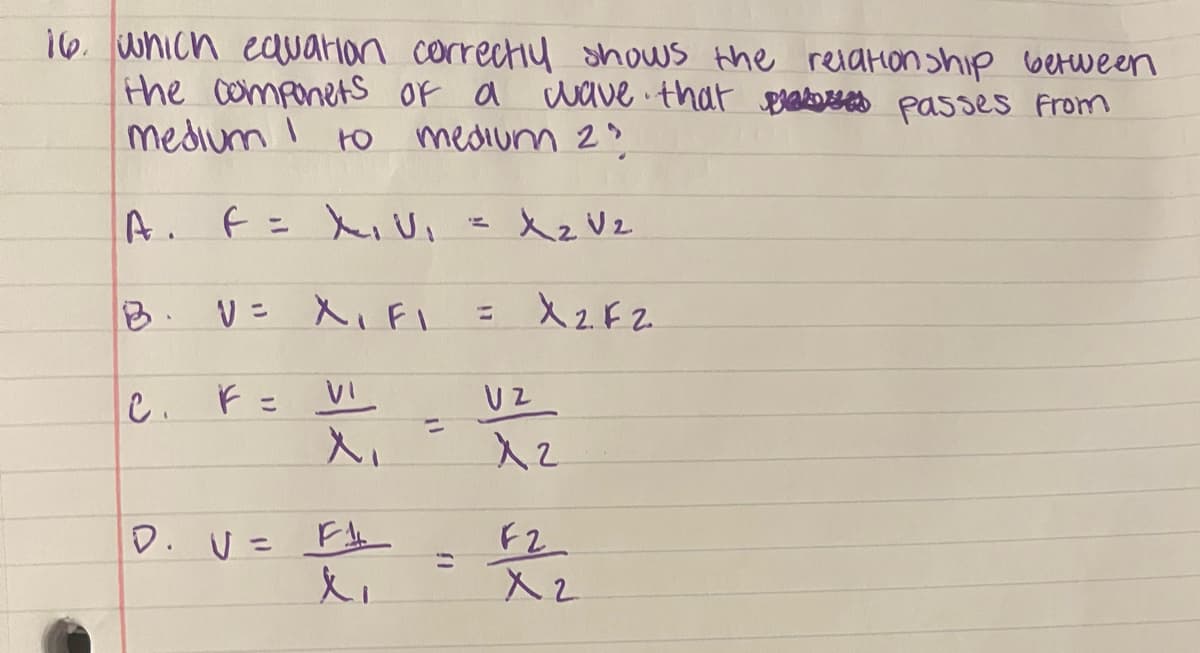 16. which equation correctly shows the relationship between
the componets of a wave that passes from
medium 1 to medium 2?
A. f = λ₁ V₁ = λ₂ V₂
B. V = λ₁ F₁ = λ₂ F₂
C. F = V₁/λ₁ = V₂/λ₂
D. V = F₁/λ₁ = F₂/λ₂